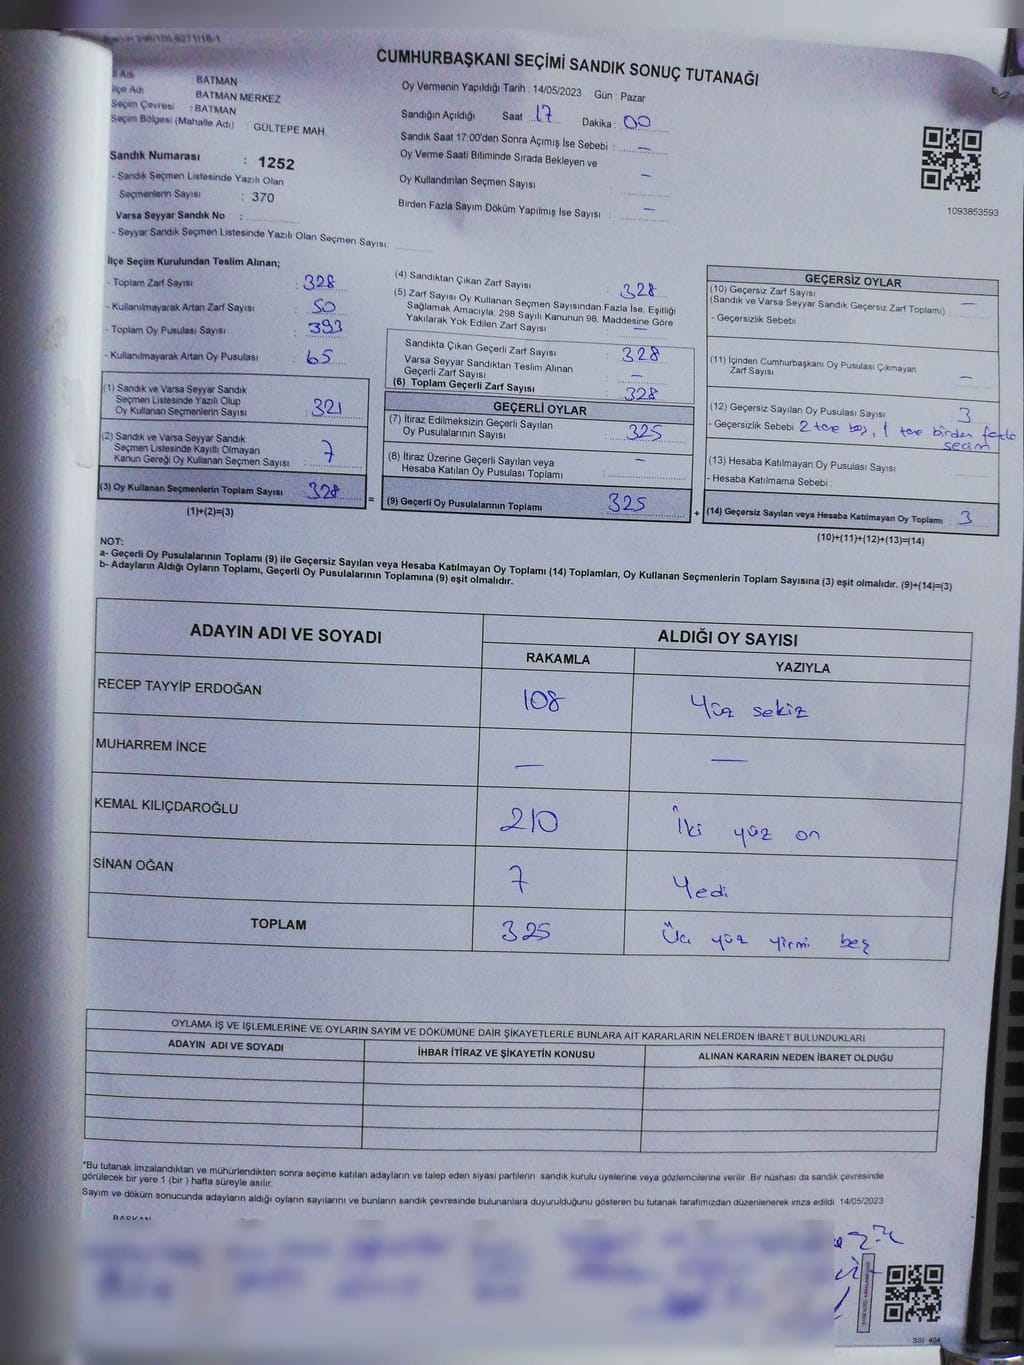 CUMHURBAŞKANI SEÇİMİ SANDIK SONUÇ TUTANAĞI
İl Adı BATMAN
İlçe Adı BATMAN MERKEZ
Seçim Çevresi : BATMAN
Seçim Bölgesi (Mahalle Adı) : GÜLTEPE MAH.
Sandık Numarası : 1252
- Sandık Seçmen Listesinde Yazılı Olan
Seçmenlerin Sayısı : 370
Varsa Seyyar Sandık No :
- Seyyar Sandık Seçmen Listesinde Yazılı Olan Seçmen Sayısı:
Oy Vermenin Yapıldığı Tarih : 14/05/2023 Gün : Pazar
Sandığın Açıldığı Saat : 17 Dakika : 00
Sandık Saat 17:00'den Sonra Açımış İse Sebebi : —
Oy Verme Saati Bitiminde Sırada Bekleyen ve —
Oy Kullandırılan Seçmen Sayısı
Birden Fazla Sayım Döküm Yapılmış İse Sayısı : —
1093853593
İlçe Seçim Kurulundan Teslim Alınan;
- Toplam Zarf Sayısı : 328
- Kullanılmayarak Artan Zarf Sayısı : 50
- Toplam Oy Pusulası Sayısı : 393
- Kullanılmayarak Artan Oy Pusulası : 65
(1) Sandık ve Varsa Seyyar Sandık
Seçmen Listesinde Yazılı Olup
Oy Kullanan Seçmenlerin Sayısı : 321
(2) Sandık ve Varsa Seyyar Sandık
Seçmen Listesinde Kayıtlı Olmayan
Kanun Gereği Oy Kullanan Seçmen Sayısı : 7
(3) Oy Kullanan Seçmenlerin Toplam Sayısı : 328
(1)+(2)=(3)
=
(4) Sandıktan Çıkan Zarf Sayısı : 328
(5) Zarf Sayısı Oy Kullanan Seçmen Sayısından Fazla İse, Eşitliği
Sağlamak Amacıyla, 298 Sayılı Kanunun 98. Maddesine Göre
Yakılarak Yok Edilen Zarf Sayısı : —
Sandıkta Çıkan Geçerli Zarf Sayısı : 328
Varsa Seyyar Sandıktan Teslim Alınan
Geçerli Zarf Sayısı : —
(6) Toplam Geçerli Zarf Sayısı 328
GEÇERLİ OYLAR
(7) İtiraz Edilmeksizin Geçerli Sayılan
Oy Pusulalarının Sayısı : 325
(8) İtiraz Üzerine Geçerli Sayılan veya —
Hesaba Katılan Oy Pusulası Toplamı :
(9) Geçerli Oy Pusulalarının Toplamı 325
+
GEÇERSİZ OYLAR
(10) Geçersiz Zarf Sayısı
(Sandık ve Varsa Seyyar Sandık Geçersiz Zarf Toplamı) : —
- Geçersizlik Sebebi
(11) İçinden Cumhurbaşkanı Oy Pusulası Çıkmayan
Zarf Sayısı : —
(12) Geçersiz Sayılan Oy Pusulası Sayısı : 3
- Geçersizlik Sebebi 2 tane boş, 1 tane birden fazla
seçim
(13) Hesaba Katılmayan Oy Pusulası Sayısı
- Hesaba Katılmama Sebebi :
(14) Geçersiz Sayılan veya Hesaba Katılmayan Oy Toplamı 3
(10)+(11)+(12)+(13)=(14)
NOT:
a- Geçerli Oy Pusulalarının Toplamı (9) ile Geçersiz Sayılan veya Hesaba Katılmayan Oy Toplamı (14) Toplamları, Oy Kullanan Seçmenlerin Toplam Sayısına (3) eşit olmalıdır. (9)+(14)=(3)
b- Adayların Aldığı Oyların Toplamı, Geçerli Oy Pusulalarının Toplamına (9) eşit olmalıdır.
ADAYIN ADI VE SOYADI ALDIĞI OY SAYISI
RAKAMLA YAZIYLA
RECEP TAYYİP ERDOĞAN 108 Yüz sekiz
MUHARREM İNCE — —
KEMAL KILIÇDAROĞLU 210 İki yüz on
SİNAN OĞAN 7 Yedi
TOPLAM 325 Üç yüz yirmi beş
OYLAMA İŞ VE İŞLEMLERİNE VE OYLARIN SAYIM VE DÖKÜMÜNE DAİR ŞİKAYETLERLE BUNLARA AİT KARARLARIN NELERDEN İBARET BULUNDUKLARI
ADAYIN ADI VE SOYADI İHBAR İTİRAZ VE ŞİKAYETİN KONUSU ALINAN KARARIN NEDEN İBARET OLDUĞU
*Bu tutanak imzalandıktan ve mühürlendikten sonra seçime katılan adayların ve talep eden siyasi partilerin sandık kurulu üyelerine veya gözlemcilerine verilir. Bir nüshası da sandık çevresinde
görülecek bir yere 1 (bir) hafta süreyle asılır.
Sayım ve döküm sonucunda adayların aldığı oyların sayılarını ve bunların sandık çevresinde bulunanlara duyurulduğunu gösteren bu tutanak tarafımızdan düzenlenerek imza edildi. 14/05/2023
BAŞKAN
SSI 404